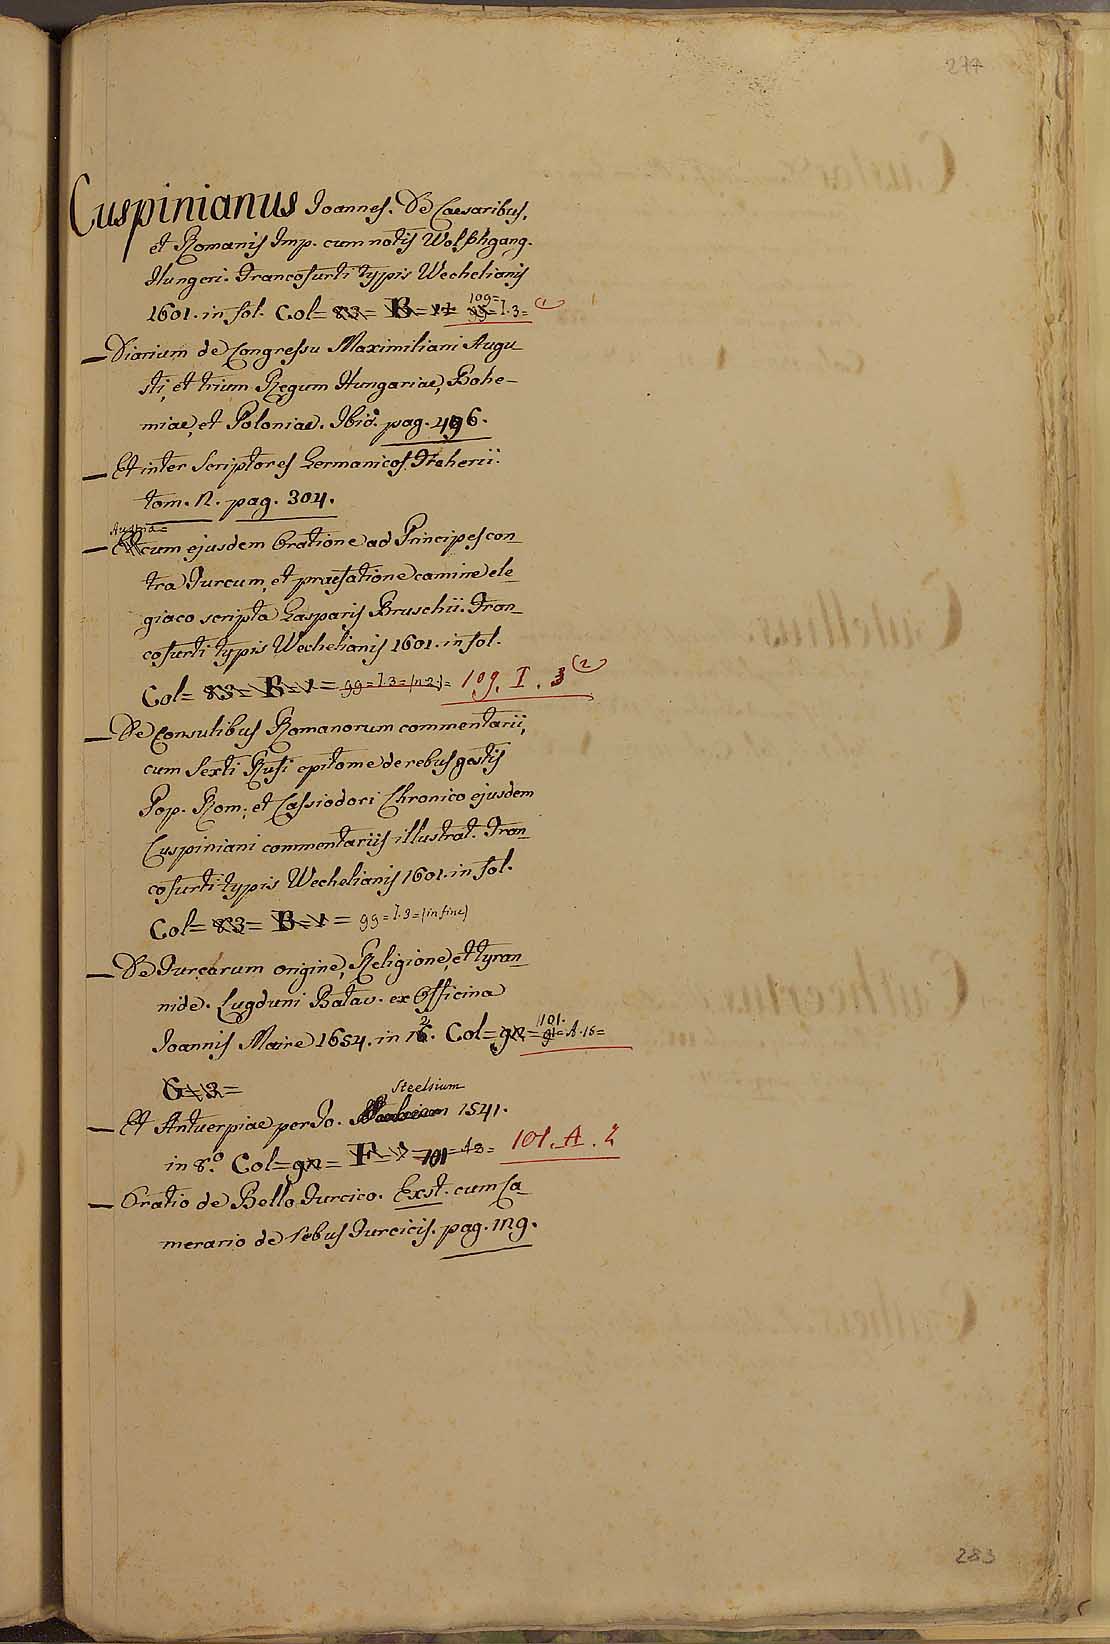 277
Cuspinianus Ioannes. De Caesaribus,
et Romanis Imp. cum notis Wolfhgang.
Hungeri. Francofurti typis Wechelianis
109=
1601. in fol. Col= 83= B= 99= I.3= (1
— Diarium de Congressu Maximiliani Augu_
sti, et trium Regum Hungariae, Bohe_
miae, et Poloniae. Ibid. pag. 496.
— Et inter Scriptores Germanicos Freherii.
tom. 2. pag. 304.
Austria=
— Et cum ejusdem Oratione ad Principes con_
tra Turcum, et praefatione camine ele_
giaco scripta Gasparis Bruschii. Fran_
cofurti typis Wechelianis 1601. in fol.
Col= 83= B=1= 99=I.3=(n 2)= 109. I. 3 (2
— De Consulibus Romanorum commentarii,
cum Sexti Rufi epitome de rebus gestis
Pop. Rom; et Cassiodori Chronico ejusdem
Cuspiniani commentariis illustrat. Fran_
cofurti typis Wechelianis 1601. in fol.
Col= 83= B=1= 99=I.3=(in fine)
— De Turcarum origine, Religione, et tyran_
nide. Lugduni Batav. ex Officina
2 101.
Ioannis Maire 1654. in 16. Col= 92= 91= A.15=
G=3=
Steelsium
— Et Antuerpiae per Io. 1541.
in 8.º Col= 92= F= 101= A2= 101. A. 2
— Oratio de Bello Turcico. Exst. cum Ca_
merario de rebus Turcicis. pag. 129.
283